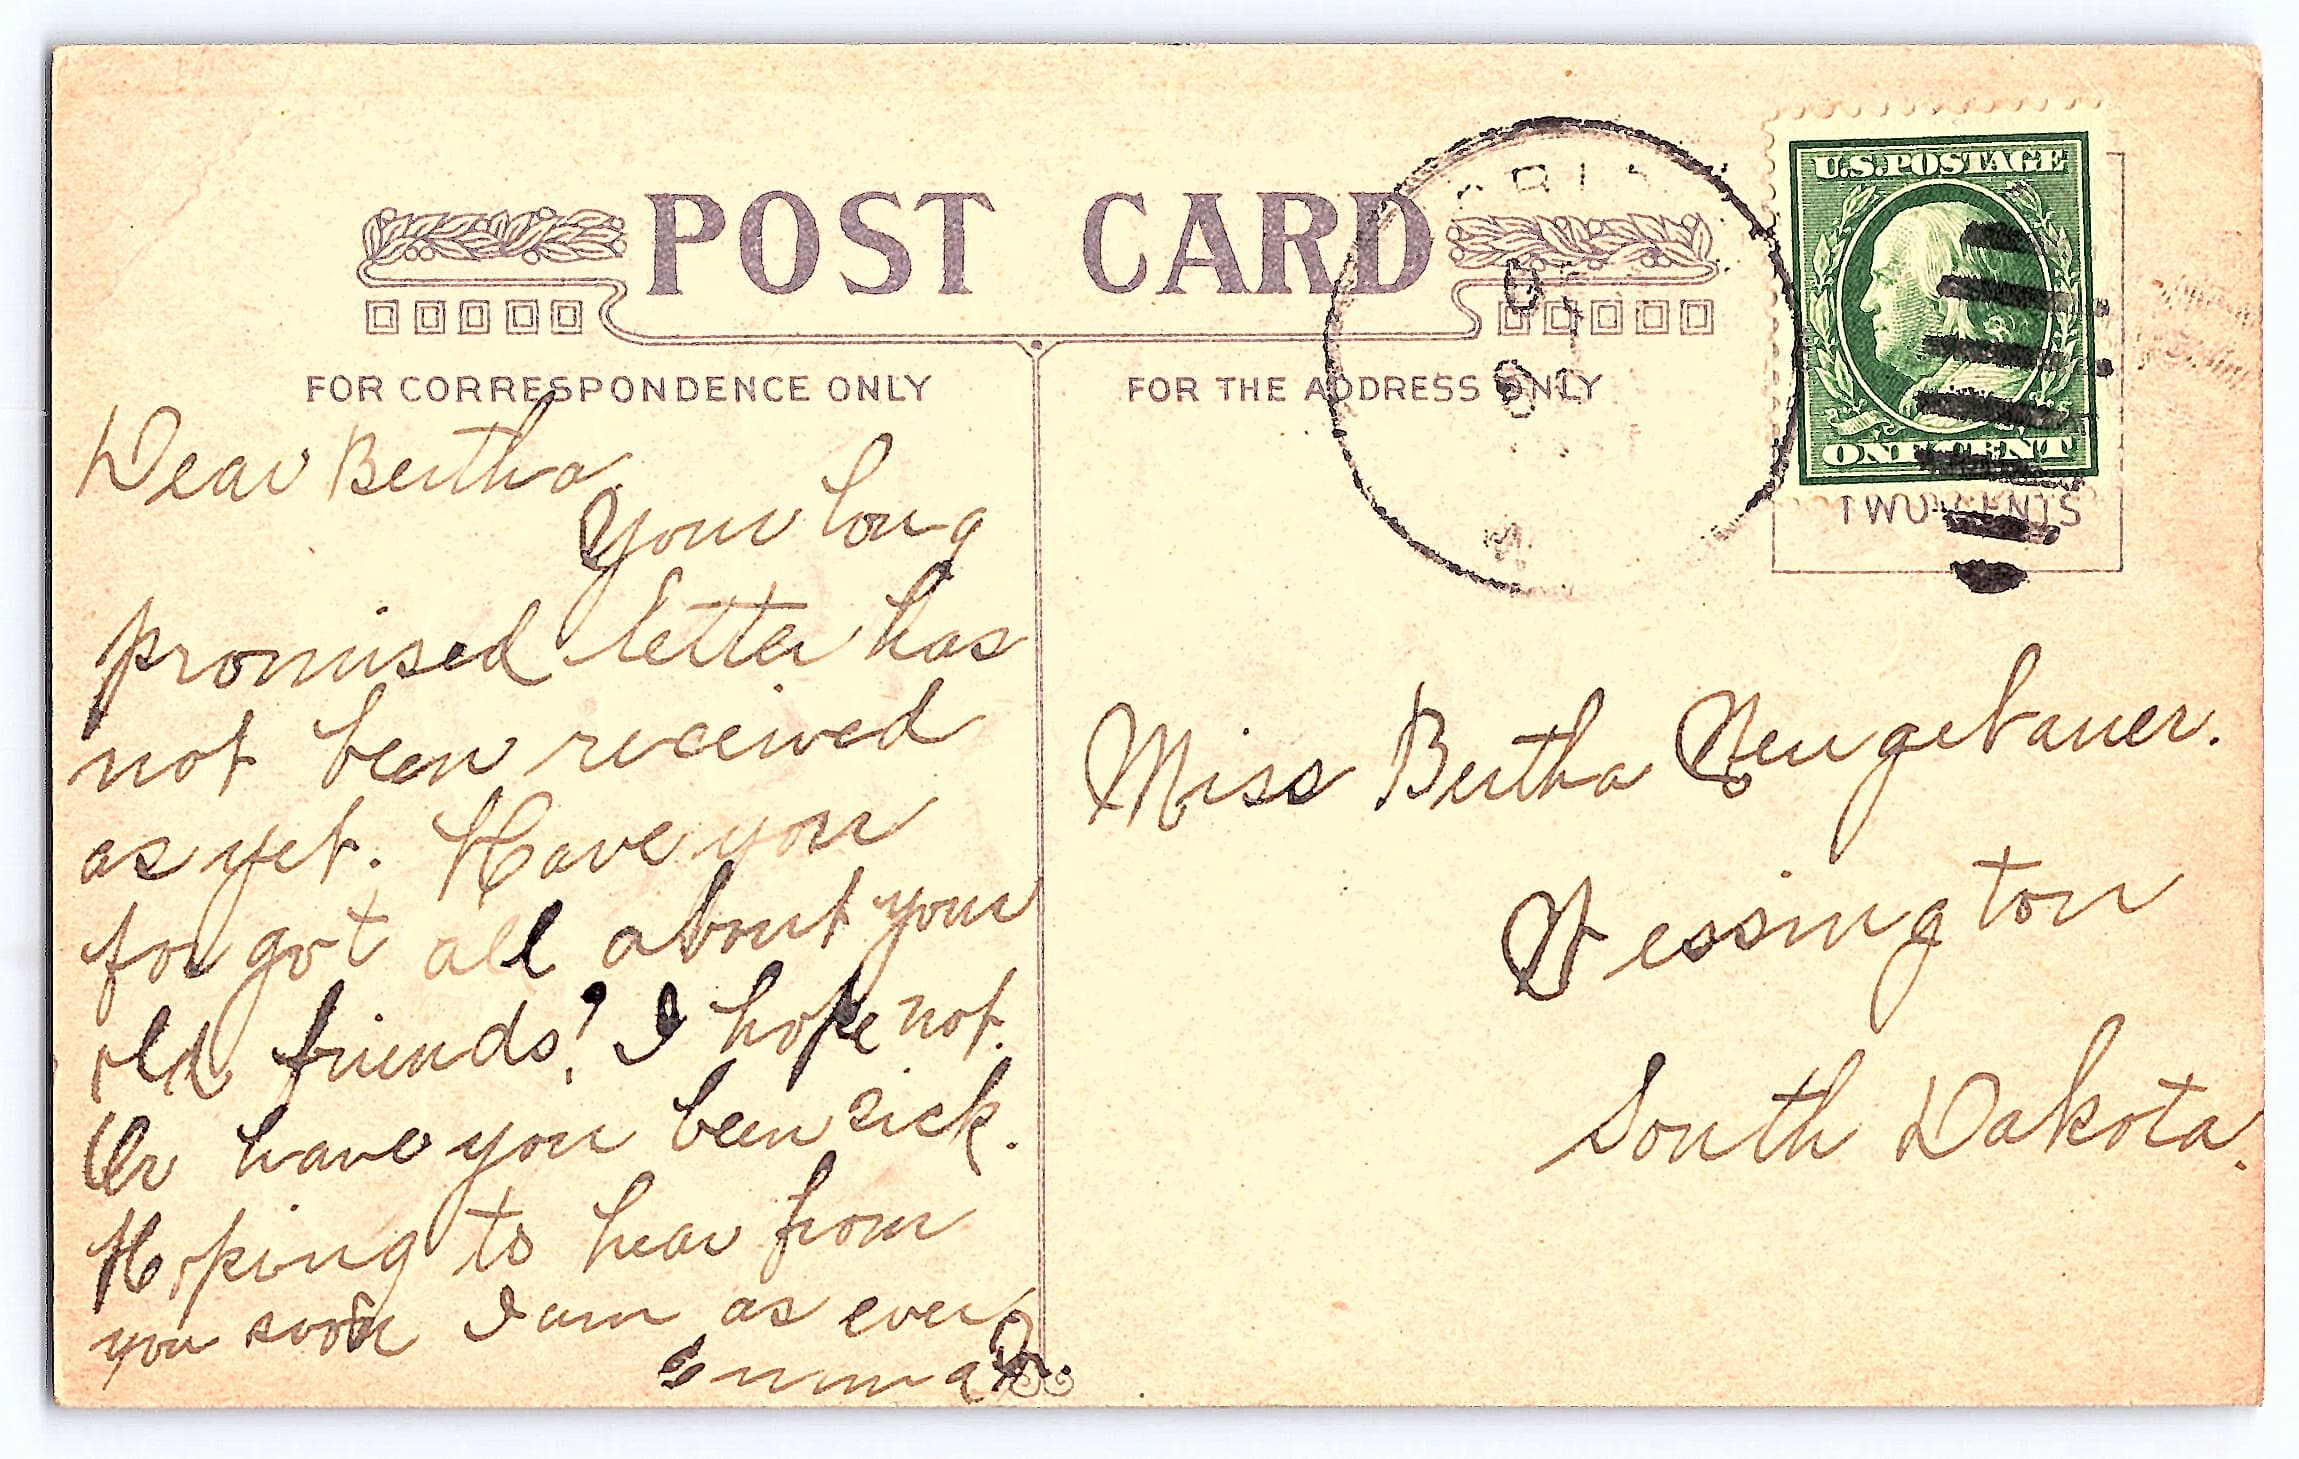 POST CARD
FOR CORRESPONDENCE ONLY
FOR THE ADDRESS ONLY
U.S. POSTAGE
ONE CENT
Dear Bertha.
Your long
promised letter has
not been received
as yet. Have you
forgot all about your
old friends? I hope not.
Or have you been sick.
Hoping to hear from
you soon I am as ever
Emma
Miss Bertha Neugebauer.
Wessington
South Dakota.